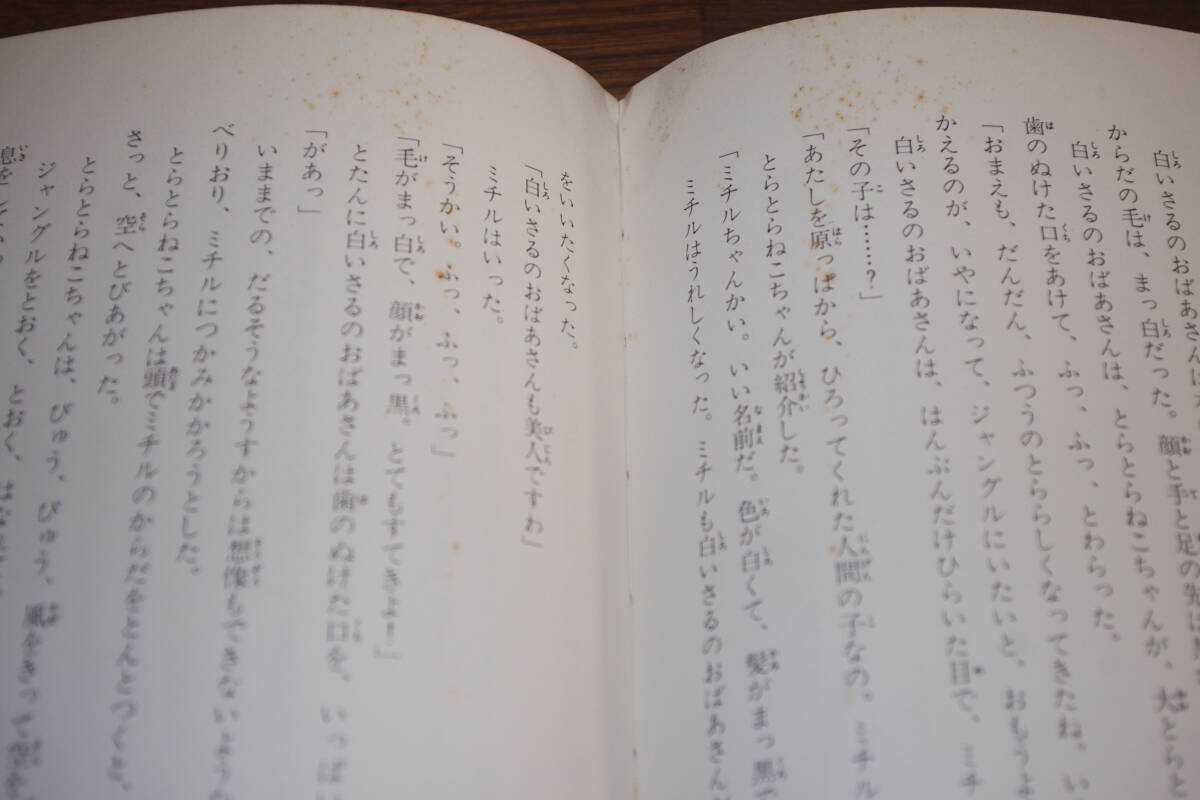 白いさるのおばあさんは
からだの毛は、まっ白だった。顔と手と足の先は
白いさるのおばあさんは、とらとらねこちゃんが、大とらと
歯のぬけた口をあけて、ふっ、ふっ、とわらった。
「おまえも、だんだん、ふつうのとららしくなってきたね。い
かえるのが、いやになって、ジャングルにいたいと、おもうよ
白いさるのおばあさんは、はんぶんだけひらいた目で、ミチ
「その子は……?」
「あたしを原っぱから、ひろってくれた人間の子なの。ミチル
とらとらねこちゃんが紹介した。
「ミチルちゃんかい。いい名前だ。色が白くて、髪がまっ黒で
ミチルはうれしくなった。ミチルも白いさるのおばあさん
をいいたくなった。
「白いさるのおばあさんも美人ですわ」
ミチルはいった。
「そうかい。ふっ、ふっ、ふっ」
「毛がまっ白で、顔がまっ黒。とてもすてきよ!」
とたんに白いさるのおばあさんは歯のぬけた口を、いっぱい
「があっ」
いままでの、だるそうなようすからは想像もできないような
べりおり、ミチルにつかみかかろうとした。
とらとらねこちゃんは頭でミチルのからだをとんとつくと、
さっと、空へとびあがった。
とらとらねこちゃんは、びゅう、びゅう、風をきって空を
ジャングルをとおく、とおく、はなれ
息を